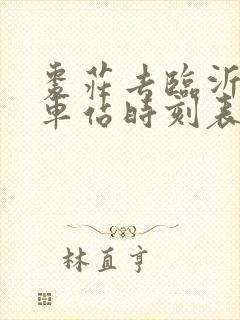 棗莊去臨沂
車佔時刻表
林直亨